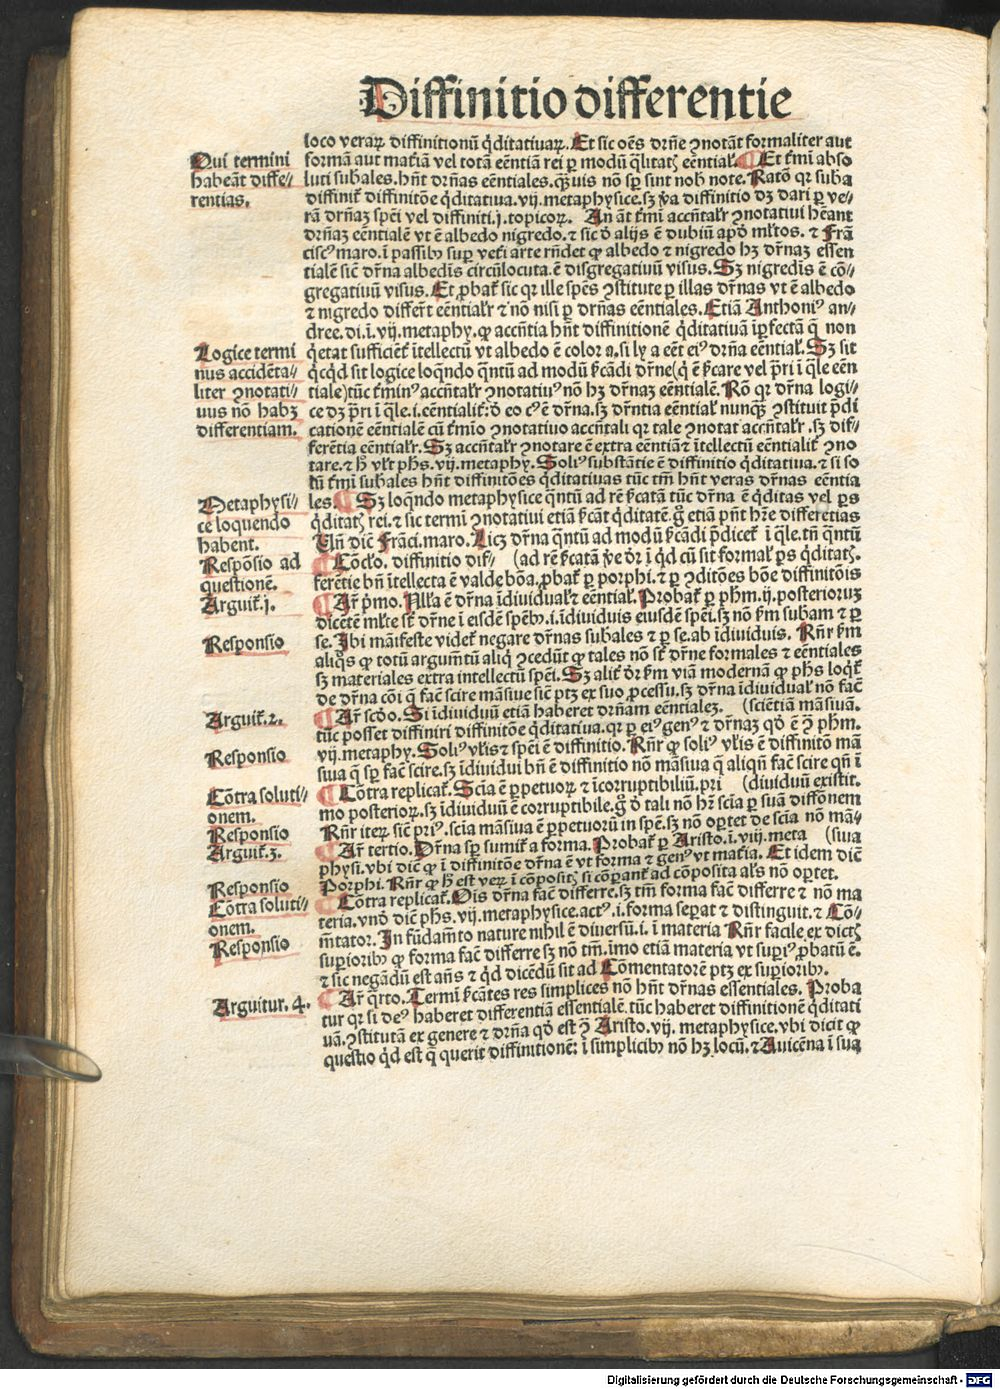 Diffinitio differentie
loco veraꝝ diffinitionũ q̇ditatiuaꝝ. Et sic oẽs drñe ꝯnotãt formaliter aut
Qui termini
habeãt diffe⸗
rentias.
formã aut matiã vel totã eẽntiã rei ꝑ modũ q̃litatꝭ eẽntial'. Et tm̃i abso
luti subales. hñt drñas eẽntiales. q̃uis non sp̲ sint nob note. Ratõ qr suba
diffinit diffinitõe q̇ditatiua. vij. metaphysice. sꝫ ṽa diffinitio dꝫ dari ꝑ ve⸗
rã drñaꝫ spẽi vel diffiniti. j. topicoꝝ. An ãt tm̃i accñtalr ꝯnotatiui hẽant
drñaꝫ eẽntialẽ vt ẽ albedo nigredo. ⁊ sic ð alijs ẽ dubiũ apð ml̃tos. ⁊ Frã
ciscꝰ maro. ĩ passibꝫ suꝑ veti arte rñdet ꝙ albedo ⁊ nigredo hꝫ drñaꝫ essen
tialẽ sic drña albedĩs circũlocuta. ẽ disgregatiuũ visus. Sꝫ nigredĩs ẽ cõ⸗
gregatiuũ visus. Et ꝓbat sic qr ille spẽs ꝯstitute ꝑ illas drñas vt ẽ albedo
⁊ nigredo differt eẽntialr ⁊ nõ nisi ꝑ drñas eẽntiales. Etiã Anthoniꝰ an⸗
dree. di. i. vij. metaphy. ꝙ accñtia hñt diffinitionẽ q̇ditatiuã iꝑfectã q̃ non
Logice termi
nus accidẽta⸗
liter ꝯnotati⸗
uus nõ habꝫ
differentiam.
q̇etat sufficiẽt ĩtellectũ vt albedo ẽ color a. si a eẽt eiꝰ drña eẽntial'. Sꝫ sit
q̇cq̇d sit logice loq̃ndo q̃ntũ ad modũ p̃cãdi drñe (q̃ ẽ p̃care vel p̃ri ĩ q̃le eẽn
tiale) tũc tm̃inꝰ accñtalr ꝯnotatiuꝰ nõ hꝫ drñaꝫ eẽntialẽ. Rõ qr drña logi⸗
ce dꝫ p̃ri ĩ q̃le. i. eẽntialit: ð eo cꝰ ẽ drña. sꝫ drñtia eẽntial' nunq̃ꝫ ꝯstituit p̃di
cationẽ eẽntialẽ cũ tm̃io ꝯnotatiuo accñtali qr tale ꝯnotat accñtalr. sꝫ dif⸗
ferẽtia eẽntialr. Sꝫ accñtalr ꝯnotare ẽ extra eẽntiã ⁊ ĩtellectũ eẽntialit ꝯno
tare. ⁊ h vlt phs. vij. metaphy. Soliꝰ substãtie ẽ diffinitio q̇ditatiua. ⁊ si so
tũ tm̃i subales hñt diffinitões q̇ditatiuas tũc tm̃ hñt veras drñas eẽntia
Metaphysi⸗
ce loquendo
habent.
les. Sꝫ loq̃ndo metaphysice q̃ntũ ad rẽ p̃catã tũc drña ẽ q̇ditas vel ps
q̇ditatꝭ rei. ⁊ sic termi ꝯnotatiui etiã p̃cãt q̇ditatẽ. g̊ etiã pñt hr̃e differẽtias
Vñ dic̃ Frãci. maro. Licꝫ drña q̃ntũ ad modũ p̃cãdi p̃dicet ĩ q̃le. tñ q̃ntũ
Respõsio ad
questionẽ.
Cõclo. diffinitio dif⸗ (ad rẽ p̃catã ṽe ðr ĩ q̇d cũ sit formal' ps q̇ditatꝭ.
ferẽtie bñ ĩtellecta ẽ valde bõa. ꝓbat ꝑ porphi. ⁊ ꝑ ꝯditões bõe diffinitõis
Arguit. j.
Ar̃ p̃mo. Nll̃a ẽ drña ĩdiuidual' ⁊ eẽntial'. Probat ꝑ phm. ij. posterioruꝫ
dicẽtẽ ml̃te st drñe ĩ eisdẽ spẽbꝫ. i. ĩdiuiduis eiusdẽ spẽi. sꝫ nõ p̃m subam ⁊ ꝑ
Responsio
se. Jbi mãifeste videt negare drñas subales ⁊ ꝑ se. ab ĩdiuiduis. Rñr p̃m
aliq̇s ꝙ totũ argum̃tũ aliq̇ ꝯcedũt ꝙ tales nõ st drñe formales ⁊ eẽntiales
sꝫ materiales extra intellectũ spẽi. Sꝫ alit ðr p̃m viã modernã ꝙ phs loq̇t
de drña cõi q̃ fac̃ scire mãsiue sic ptꝫ ex suo ꝓcessu. sꝫ drña ĩdiuidual' nõ fac̃
Arguit. 2.
Ar̃ scðo. Si ĩdiuiduũ etiã haberet drñam eẽntialeꝫ. (sciẽtiã mãsiuã.
tũc posset diffiniri diffinitõe q̇ditatiua. qr ꝑ eiꝰ genꝰ ⁊ drñaꝫ qð ẽ ꝯ̃ phm.
Responsio
vij. metaphy. Soliꝰ vlis ⁊ spẽi ẽ diffinitio. Rñr ꝙ soliꝰ vlis ẽ diffinitõ mã
siua q̃ sp̲ fac̃ scire. sꝫ ĩdiuidui bñ ẽ diffinitio nõ mãsiua q̃ aliqñ fac̃ scire qñ ĩ
Cõtra soluti⸗
onem.
Cõtra replicat. Scia ẽ ꝑpetuoꝝ ⁊ ĩcorruptibiliũ. pri (diuiduũ existit.
mo posterioꝝ. sꝫ ĩdiuiduũ ẽ corruptibile. g̊ ð tali nõ hr̃ scia ꝑ suã diffõnem
Responsio
Rñr iteꝝ sic priꝰ. scia mãsiua ẽ ꝑpetuorũ in spẽ. sꝫ nõ oꝑtet de scia nõ mã⸗
Arguit. 3.
Ar̃ tertio. Drña sp̲ sumit a forma. Probat ꝑ Aristo. i. viij. meta (siua
physi. vbi dic̃ ꝙ ĩ diffinitõe drña ẽ vt forma ⁊ genꝰ vt matia. Et idem dic̃
Responsio
Porphi. Rñr ꝙ h est veꝝ ĩ cõpositꝭ si cõparant ad cõposita als nõ oꝑtet.
Cõtra soluti⸗
onem.
Cõtra replicat. Ois drña fac̃ differre. sꝫ tm̃ forma fac̃ differre ⁊ nõ ma
teria. vnð dic̃ phs. vij. metaphysice. actꝰ. i. forma seꝑat ⁊ distinguit. ⁊ Cõ⸗
Responsio
m̃tator. Jn fũdam̃to nature nihil ẽ diuersũ. i. ĩ materia Rñr facile ex dictꝭ
suꝑioribꝫ ꝙ forma fac̃ differre sꝫ nõ tm̃. imo etiã materia vt suꝑiꝰ ꝓbatũ ẽ.
⁊ sic negãdũ est añs ⁊ q̇d dicẽdũ sit ad Cõmentatorẽ ptꝫ ex suꝑioribꝫ.
Arguitur. 4.
Ar̃ qrto. Termi p̃cãtes res simplices nõ hñt drñas essentiales. Proba
tur qr si deꝰ haberet differentiã essentialẽ. tũc haberet diffinitionẽ q̇ditati
uã. ꝯstitutã ex genere ⁊ drña qð est ꝯ̃ Aristo. vij. metaphysice. vbi dicit ꝙ
questio q̇d est q̃ querit diffinitionẽ: ĩ simplicibꝫ nõ hꝫ locũ. ⁊ Auicẽna ĩ sua
Digitalisierung gefördert durch die Deutsche Forschungsgemeinschaft - DFG